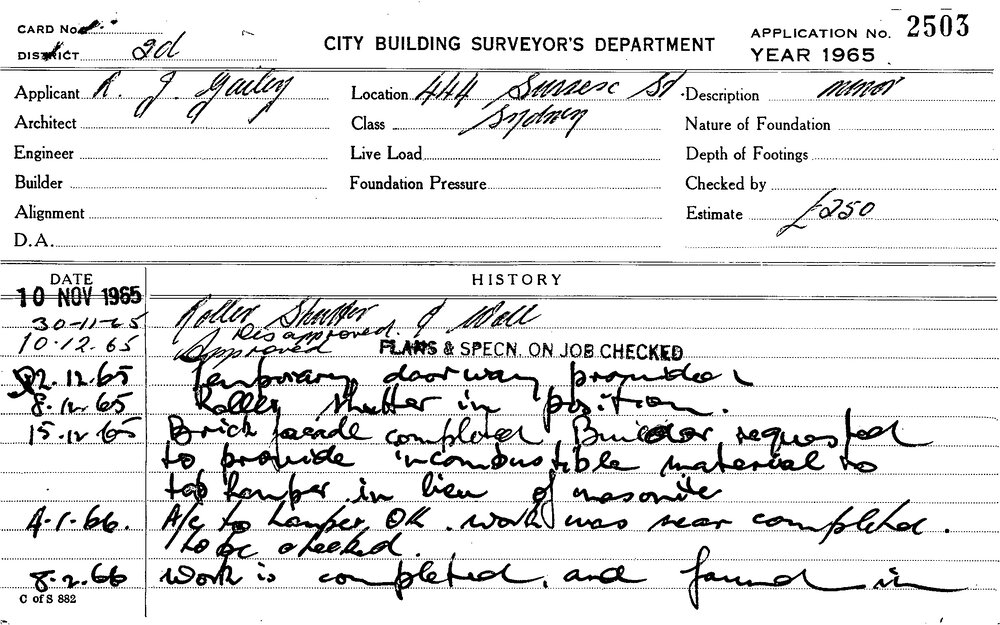 CARD No.
DISTRICT 2d
CITY BUILDING SURVEYOR'S DEPARTMENT
APPLICATION No. 2503
YEAR 1965
Applicant R. J. Gailey
Location 444 Sussex St
Description minor
Architect
Class Sydney
Nature of Foundation
Engineer
Live Load
Depth of Footings
Builder
Foundation Pressure
Checked by
Alignment
Estimate £250
D.A.
DATE
HISTORY
10 NOV 1965 Roller Shutter & Wall
30-11-65 Disapproved.
10.12.65 Approved PLANS & SPECN. ON JOB CHECKED
2.12.65 Temporary doorway provided
8.12.65 Roller shutter in position.
15.12.65 Brick facade completed Builder requested
to provide incombustible material to
top hamper in lieu of masonite
4.1.66. A/c to hamper OK. work was near completed.
To be checked.
8.2.66 Work is completed, and found in
C of S 882